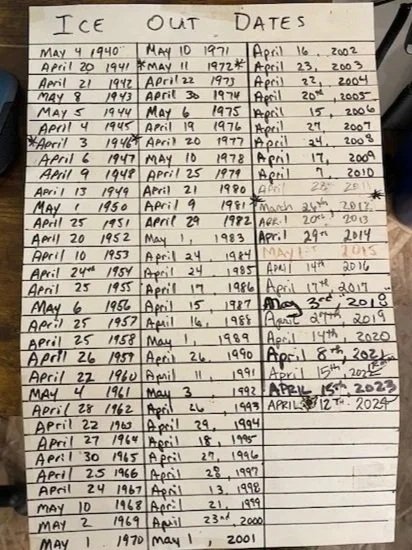 ICE OUT DATES
MAY 4 1940
April 20 1941
April 21 1942
May 8 1943
MAY 5 1944
April 4 1945
*April 3 1946*
April 6 1947
April 9 1948
April 13 1949
MAY 1 1950
April 25 1951
April 20 1952
April 10 1953
April 24th 1954
April 25 1955
MAY 6 1956
April 25 1957
April 25 1958
April 26 1959
April 22 1960
MAY 4 1961
April 28 1962
April 22 1963
April 27 1964
April 30 1965
April 25 1966
April 24 1967
MAY 10 1968
MAY 2 1969
MAY 1 1970
MAY 10 1971
*May 11 1972*
April 22 1973
April 30 1974
May 6 1975
April 19 1976
April 20 1977
MAY 10 1978
April 25 1979
April 21 1980
April 9 1981
April 29 1982
May 1, 1983
April 24, 1984
April 24, 1985
April 17, 1986
April 15, 1987
April 16, 1988
May 1, 1989
April 26, 1990
April 11, 1991
May 3 1992
April 26, 1993
April 29, 1994
April 18, 1995
April 27, 1996
April 28, 1997
April 13, 1998
April 21, 1999
April 23rd, 2000
May 1, 2001
April 16, 2002
April 23, 2003
April 22, 2004
April 20th, 2005
April 15, 2006
April 27 2007
April 24, 2008
April 17, 2009
April 7, 2010
April 2011
*March 26th 2012*
APRIL 20th, 2013
April 29th 2014
MAY 1st 2015
APRIL 14th 2016
April 17th, 2017
May 3rd 2018
April 27th, 2019
April 14th 2020
April 8th, 2021
April 15th, 2022
APRIL 15th, 2023
APRIL 12TH, 2024